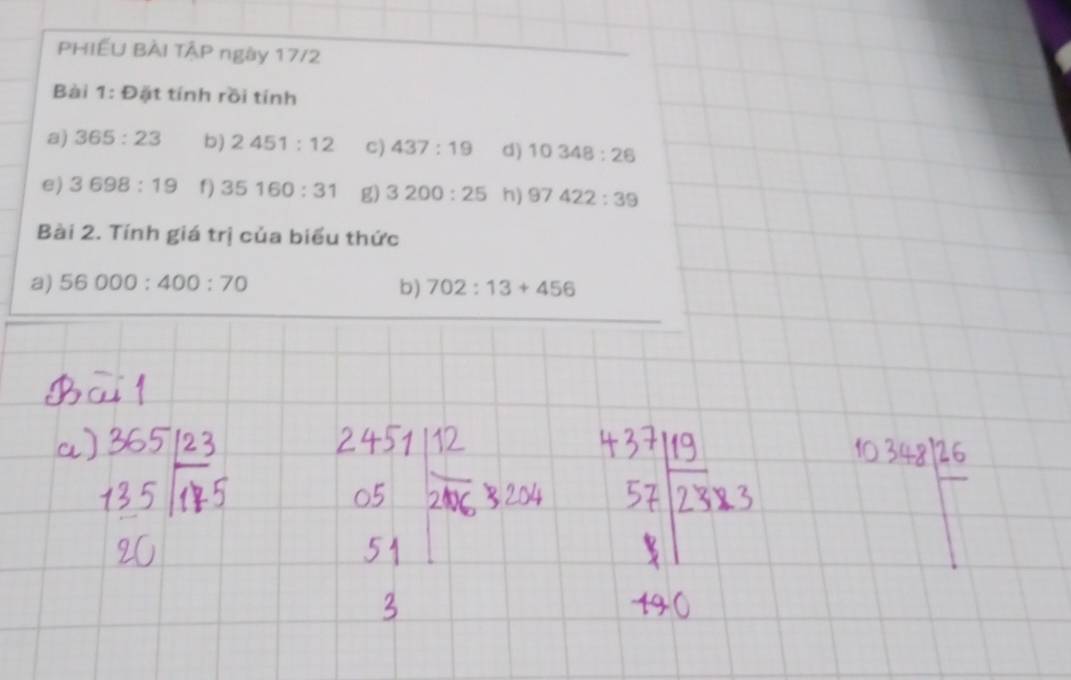 PHIẾU BÀI TẬP ngày 17/2
Bài 1: Đặt tính rồi tính
a) 365 : 23 b) 2 451 : 12 c) 437 : 19 d) 10 348 : 26
e) 3 698 : 19 f) 35 160 : 31 g) 3 200 : 25 h) 97 422 : 39
Bài 2. Tính giá trị của biểu thức
a) 56 000 : 400 : 70 b) 702 : 13 + 456
Bài 1
a) 365 23 2451 12 437 19 10 348 26
135 5 05 204 57 2 3
20 51
3 0